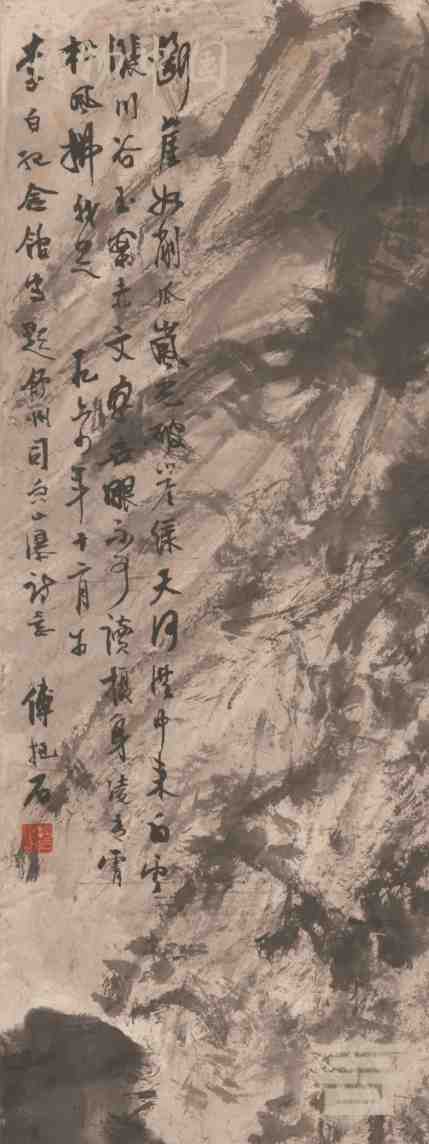 断崖如削瓜嵐光破崖绿天河從中来白雲
漲川谷玉案赤文字世眼不可讀攝身凌青霄
松風拂我足 年十二月为
李白纪念館写題舒州司空山瀑诗意 傅抱石
国